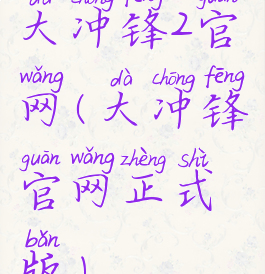 dà chōng fēng guān
大冲锋2官
wǎng dà chōng fēng
网(大冲锋
guān wǎng zhèng shì
官网正式
bǎn
版)